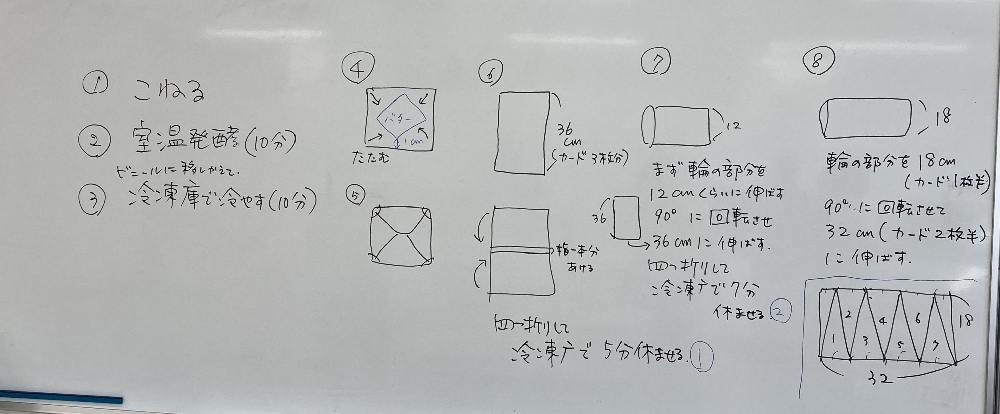 ① こねる
② 室温発酵(10分)
ビニールに移しかえて.
③ 冷凍庫で冷やす(10分)
④
バター
1cm
たたむ
⑤
⑥
36
cm
(カード3枚分)
指一本分
あける
四つ折りして
冷凍庫で5分休ませる.①
⑦
12
まず輪の部分を
12cmくらいに伸ばす
90°に回転させ
36
36cmに伸ばす.
四つ折りして
冷凍庫で7分
休ませる.②
⑧
18
輪の部分を18cm
(カード1枚半)
90°に回転させて
32cm(カード2枚半)
に伸ばす.
1 2 3 4 5 6 7
18
32